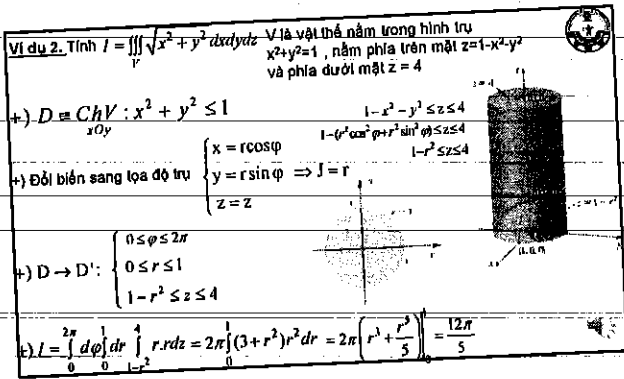 Ví dụ 2. Tính I = ∭_V √(x² + y²) dxdydz V là vật thể nằm trong hình trụ
x²+y²=1 , nằm phía trên mặt z=1-x²-y²
và phía dưới mặt z = 4
+) D ≡ ChV_{xOy} : x² + y² ≤ 1
1-x²-y² ≤ z ≤ 4
1-(r²cos²φ+r²sin²φ) ≤ z ≤ 4
1-r² ≤ z ≤ 4
+) Đổi biến sang tọa độ trụ { x = rcosφ
y = rsinφ ⇒ J = r
z = z
+) D → D': { 0 ≤ φ ≤ 2π
0 ≤ r ≤ 1
1-r² ≤ z ≤ 4
+) I = ∫_0^{2π} dφ ∫_0^1 dr ∫_{1-r²}^4 r.rdz = 2π ∫_0^1 (3+r²)r²dr = 2π (r³ + r⁵/5) |_0^1 = 12π/5
z = 4